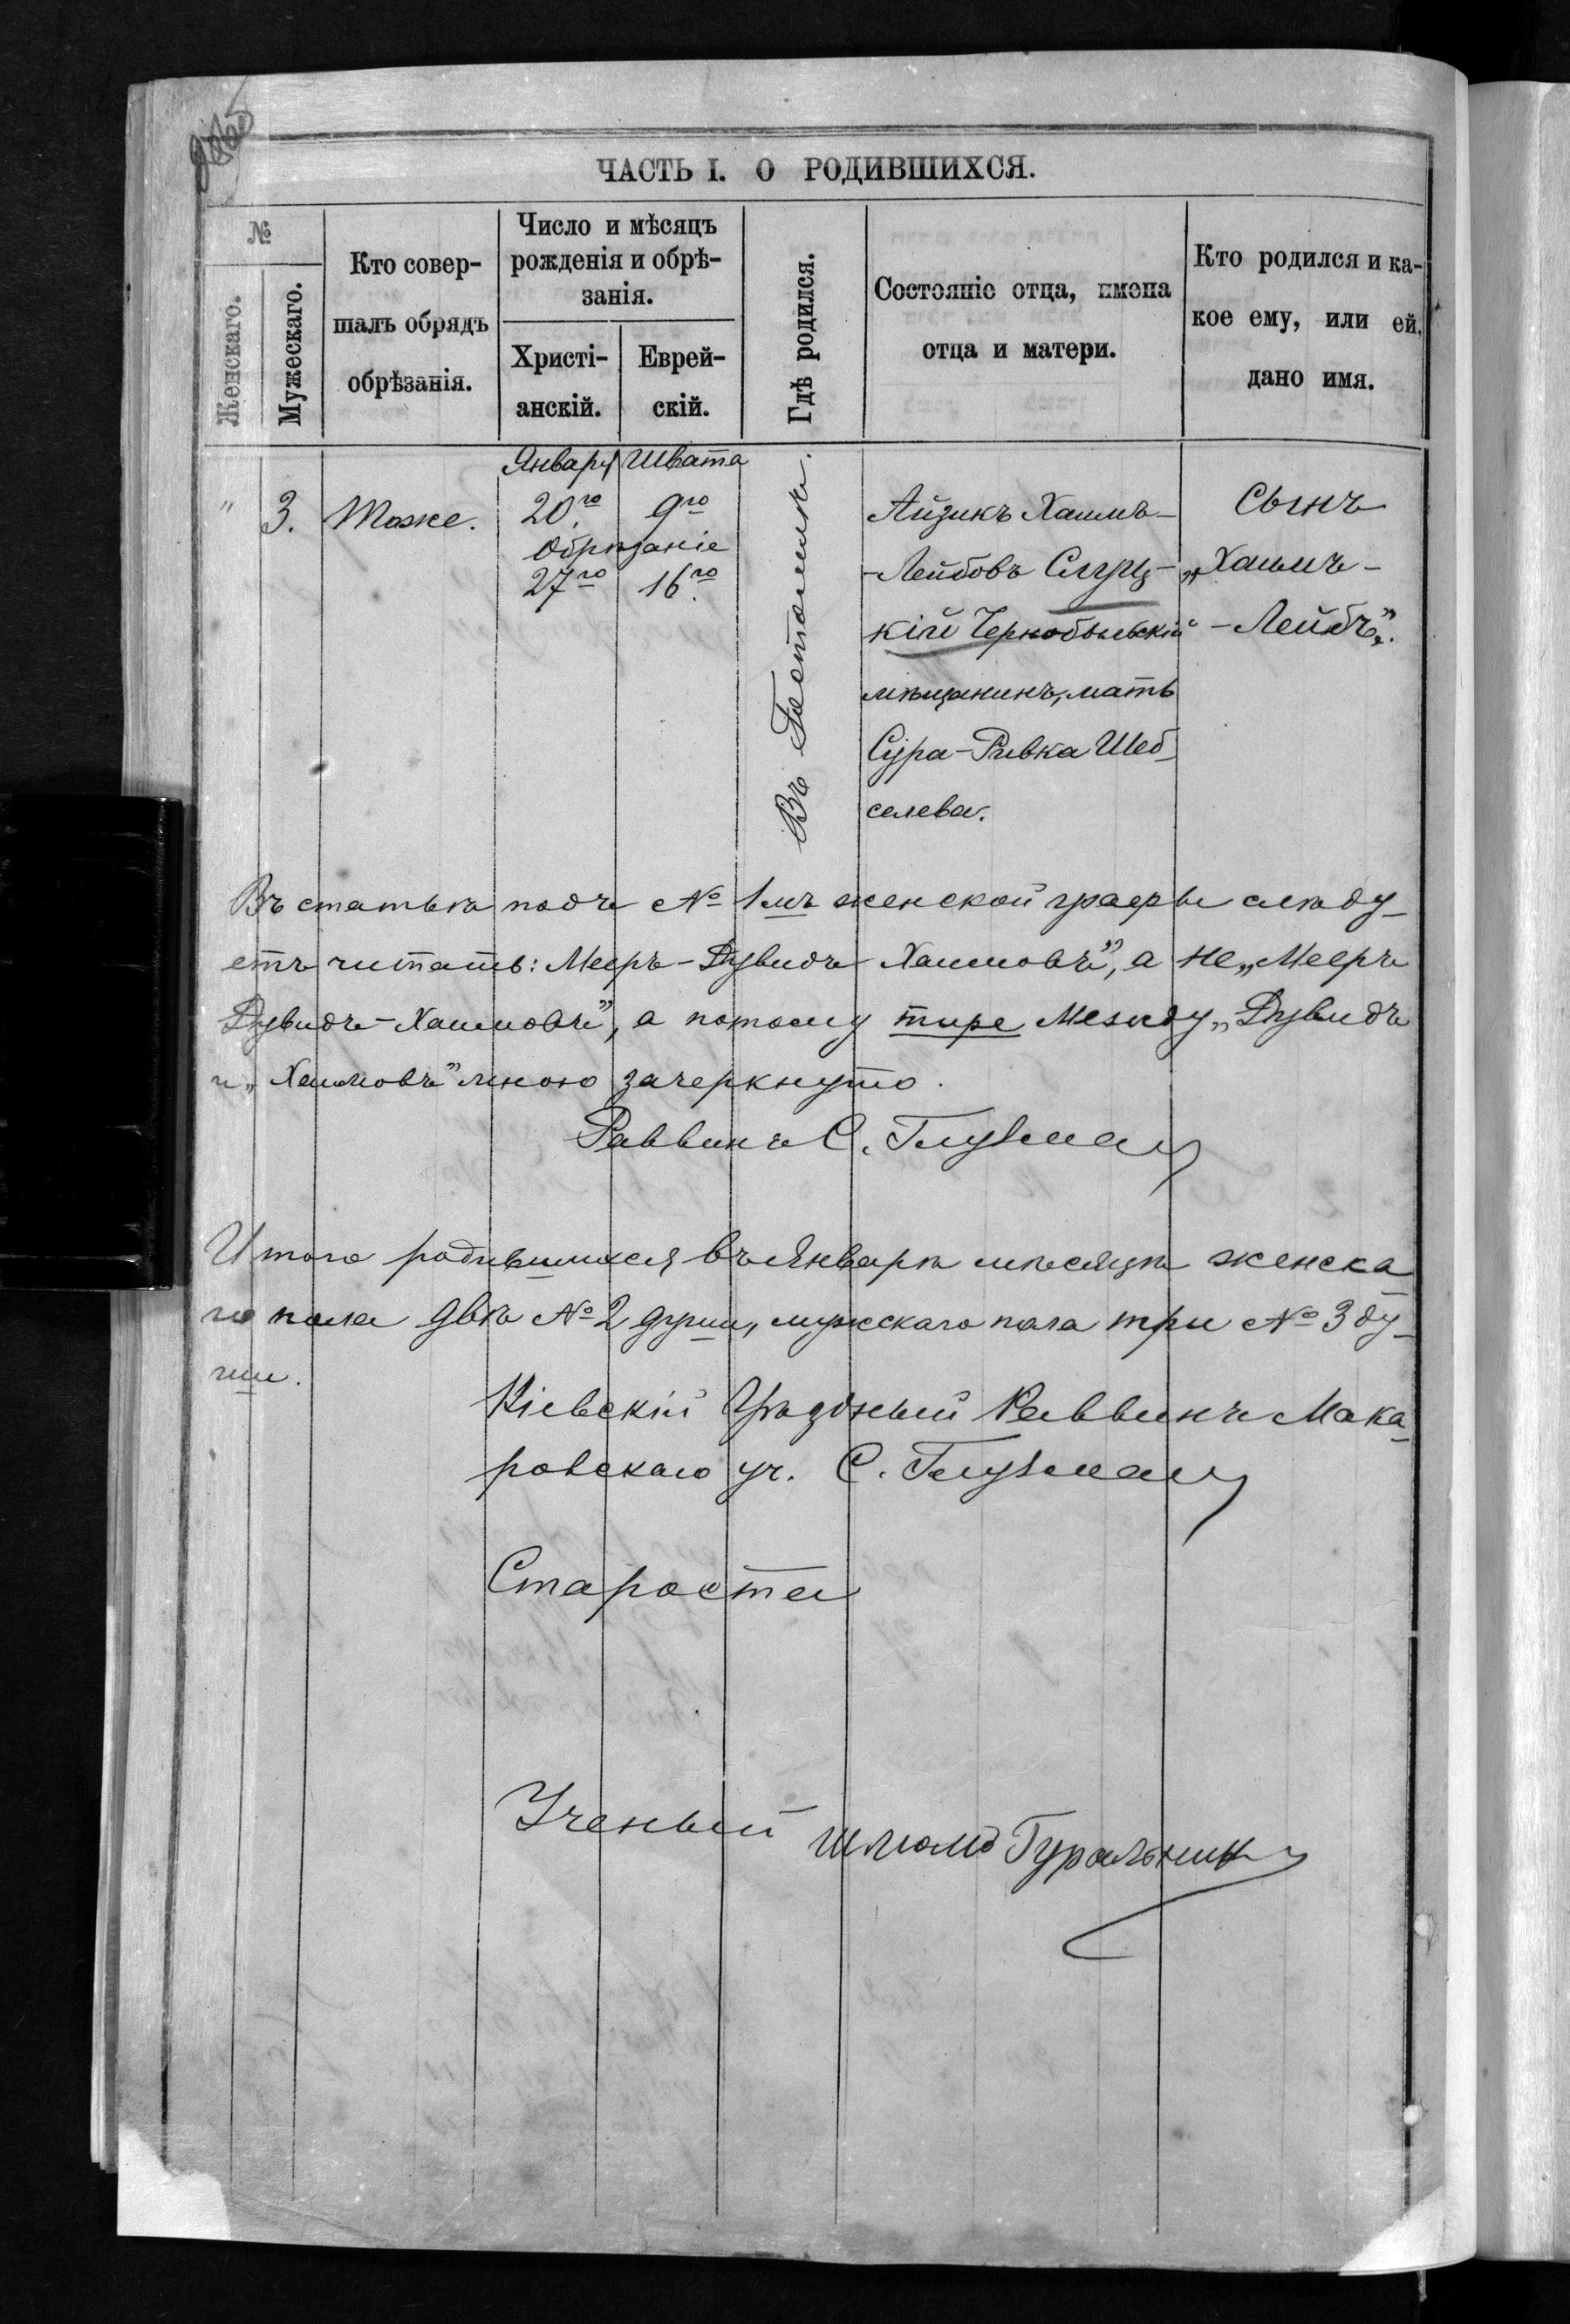 ЧАСТЬ I. О РОДИВШИХСЯ.
№
Женскаго.
Мужескаго.
Кто совер-
шалъ обрядъ
обрѣзанія.
Число и мѣсяцъ
рожденія и обрѣ-
занія.
Христі-
анскій.
Еврей-
скій.
Гдѣ родился.
Состояніе отца, имена
отца и матери.
Кто родился и ка-
кое ему, или ей,
дано имя.
Января Швата
" 3. Тоже. 20го 9го
Обрѣзаніе
27го 16го
Въ Гостомлѣ.
Айзикъ Хаимъ-
-Лейбовъ Слуц-
кій Чернобыльскій
мѣщанинъ, мать
Сура-Ривка Шеб-
селева.
Сынъ
„Хаимъ-
-Лейбъ”.
Въ статьѣ подъ № 1мъ женской графы слѣду-
етъ читать: Мееръ-Дувидъ Хаимовъ”, а не „Мееръ
Дувидъ-Хаимовъ”, а потому тире между „Дувидъ
и „Хаимовъ” мною зачеркнуто.
Раввинъ С. Глузман
Итого родившихся въ Январѣ мѣсяцѣ женска-
го пола двѣ № 2 души, мужскаго пола три № 3 ду-
ши.
Кіевскій Уѣздный Раввинъ Мака-
ровскаго уч. С. Глузман
Староста
Ученый Шлюмо Гуральник